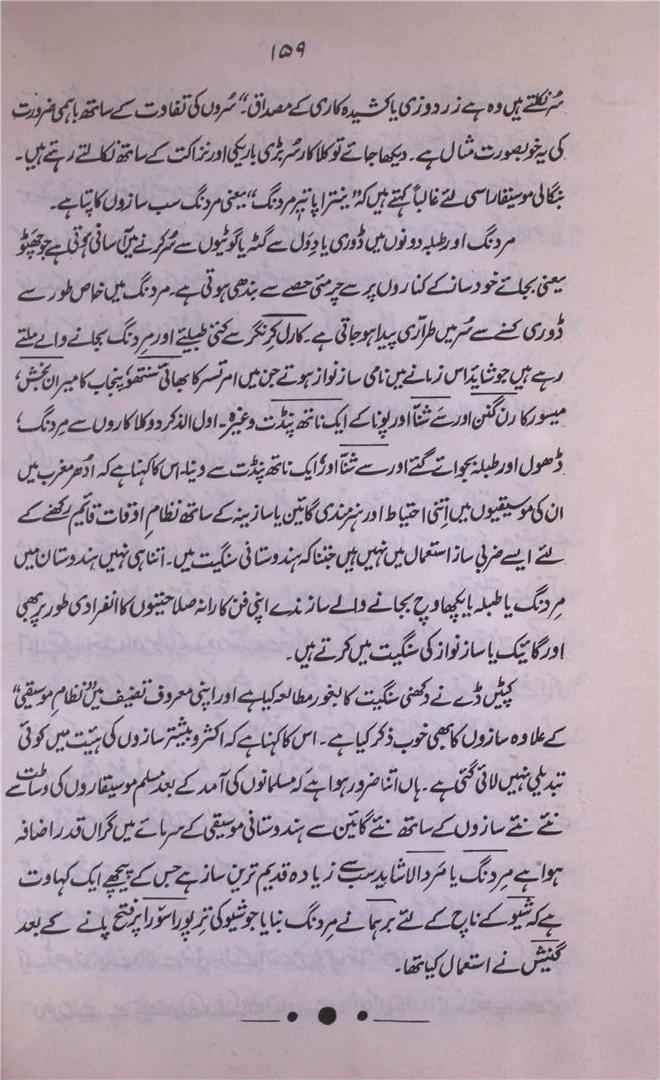 ۱۵۹
سُر نکلتے ہیں وہ ہے زردوزی یا کشیدہ کاری کے مصداق۔" سُروں کی تفاوت کے ساتھ باہمی ضرورت
کی یہ خوبصورت مثال ہے۔ دیکھا جائے تو کلاکار سُر بڑی باریکی اور نزاکت کے ساتھ نکالتے رہتے ہیں۔
بنگالی موسیقار اسی لئے غالباً کہتے ہیں کہ "ینترا پاتپر مردنگ" یعنی مردنگ سب سازوں کا پتا ہے۔
مردنگ اور طبلہ دونوں میں ڈوری یا دول سے گٹہ یا گوٹیوں سے سُر کرنے میں آسانی ہوتی ہے جو چھپٹو
یعنی بجائے خود ساز کے کناروں پر سے چرمئی حصے سے بندھی ہوتی ہے۔ مردنگ میں خاص طور سے
ڈوری کسنے سے سُر میں طراری پیدا ہو جاتی ہے۔ کارل کرنکر سے کئی طبلیئے اور مردنگ بجانے والے ملتے
رہے ہیں جو شاید اس زمانے میں نامی ساز نواز ہوتے جن میں امرتسر کا بھائی سنتھو، پنجاب کا میراں بخش،
میسور کا رن گفن اور سے شنّا اور پونا کے ایک ناتھ پنڈت وغیرہ۔ اول الذکر دو کلاکاروں سے مردنگ،
ڈھول اور طبلہ بجوائے گئے اور سے شنّا اور ایک ناتھ پنڈت سے وینا۔ اس کا کہنا ہے کہ اُدھر مغرب میں
ان کی موسیقیوں میں اتنی احتیاط اور ہنرمندی گائین یا سازینہ کے ساتھ نظام اوقات قائم رکھنے کے
لئے ایسے ضربی ساز استعمال میں نہیں ہیں جتنا کہ ہندوستانی سنگیت میں۔ اتنا ہی نہیں ہندوستان میں
مردنگ یا طبلہ یا پکھاوج بجانے والے سازندے اپنی فن کارانہ صلاحیتوں کا انفرادی طور پر بھی
اور گائیک یا ساز نواز کی سنگیت میں کرتے ہیں۔
کپٹن ڈے نے دکھنی سنگیت کا بغور مطالعہ کیا ہے اور اپنی معروف تصنیف میں "نظام موسیقی"
کے علاوہ سازوں کا بھی خوب ذکر کیا ہے۔ اس کا کہنا ہے کہ اکثر و بیشتر سازوں کی ہیئت میں کوئی
تبدیلی نہیں لائی گئی ہے۔ ہاں اتنا ضرور ہوا ہے کہ مسلمانوں کی آمد کے بعد مسلم موسیقاروں کی وساطت سے
نئے نئے سازوں کے ساتھ نئے گائین سے ہندوستانی موسیقی کے سرمائے میں گراں قدر اضافہ
ہوا ہے مردنگ یا مردالا شاید سب سے زیادہ قدیم ترین ساز ہے جس کے پیچھے ایک کہاوت
ہے کہ شیو کے ناچ کے لئے برہما نے مردنگ بنایا جو شیو کی تر پورا سورا پر فتح پانے کے بعد
گنیش نے استعمال کیا تھا۔